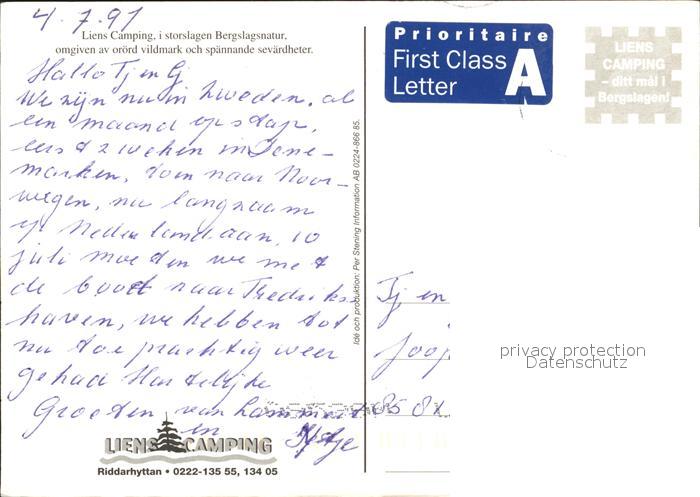 4.7.97
Liens Camping, i storslagen Bergslagsnatur,
omgiven av orörd vildmark och spännande sevärdheter.
Hallo Tj en G
We zijn nu in Zweden, al
een maand op stap,
eerst 2 weken in Dene-
marken, toen naar Noor-
wegen, nu langzaam
op Nederland aan, 10
juli moeten we met
de boot naar Frederiks
haven, we hebben tot
nu toe prachtig weer
gehad Hartelijke
Groeten van
en
LIENS CAMPING
Riddarhyttan • 0222-135 55, 134 05
Idé och produktion: Per Stening Information AB 0224-866 85.
Prioritaire
First Class
Letter
A
LIENS
CAMPING
– ditt mål i
Bergslagen!
Tj en
Joop
privacy protection
Datenschutz